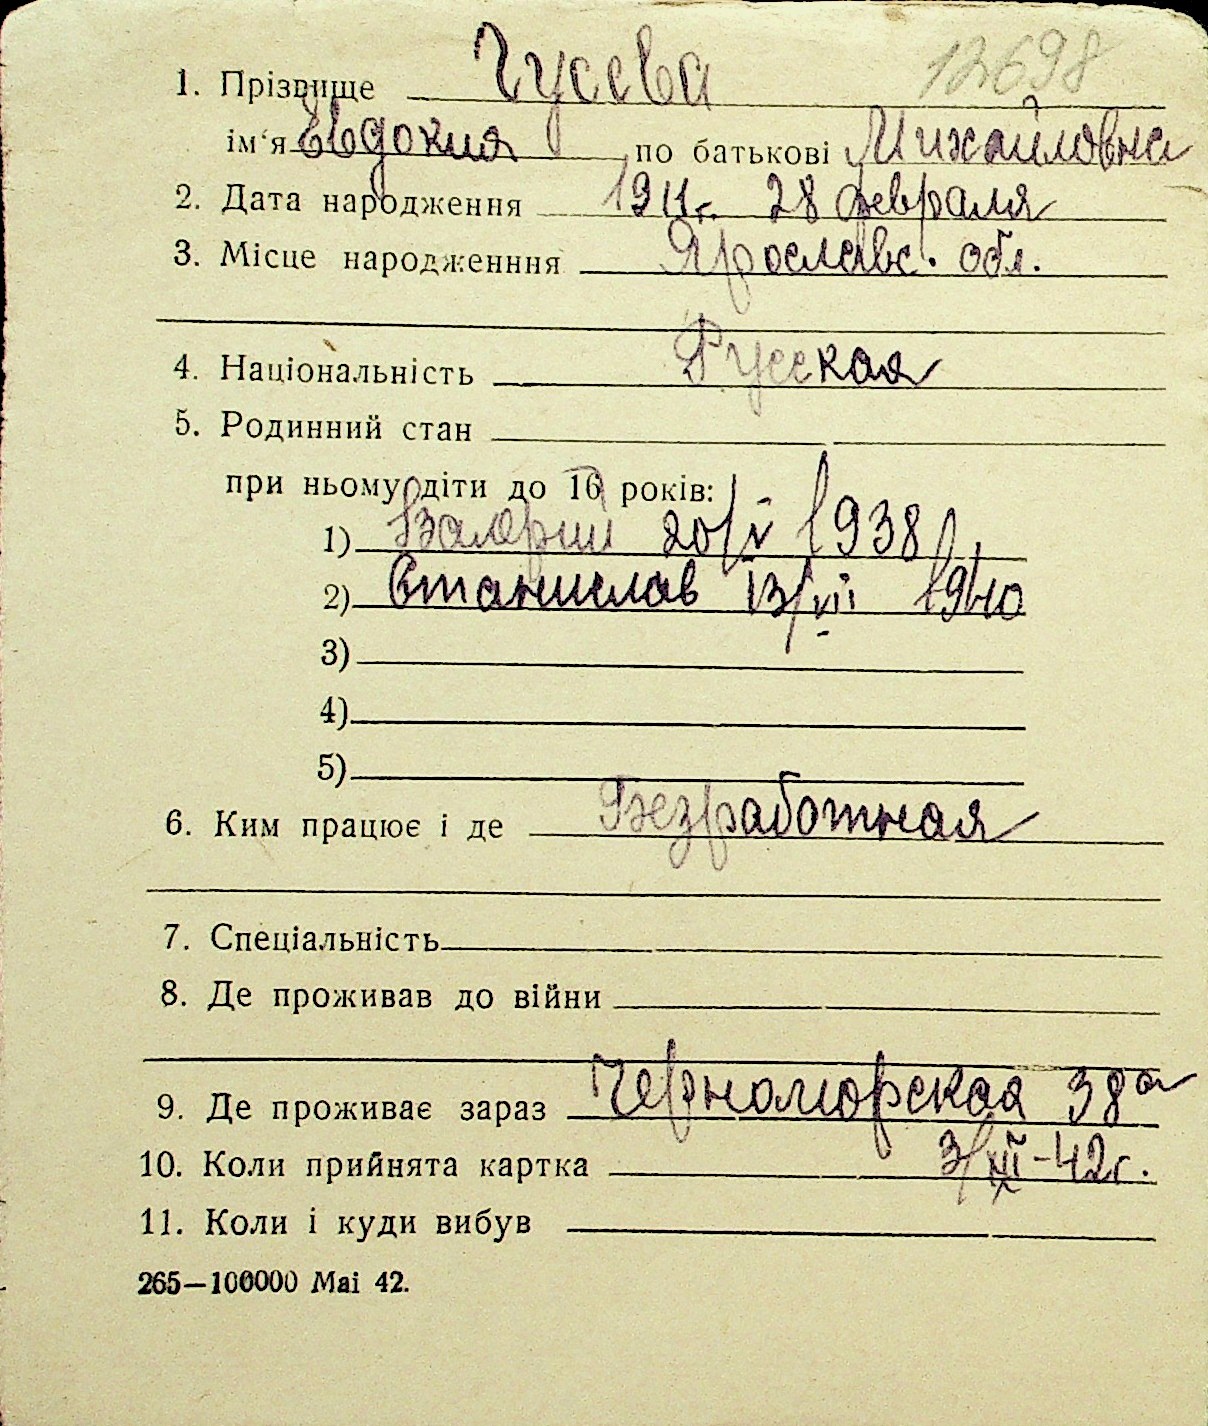 12698
1. Прізвище Гусева
ім‘я Евдокия по батькові Михайловна
2. Дата народження 1911г. 28 февраля
3. Місце народженння Ярославс. обл.
4. Національність Русская
5. Родинний стан
при ньому діти до 16 років:
1) Валерий 20/V 1938
2) Станислав 13/VII 1940
3)
4)
5)
6. Ким працює і де Безработная
7. Спеціальність
8. Де проживав до війни
9. Де проживає зараз Черноморская 38а
10. Коли прийнята картка 3/XII-42г.
11. Коли і куди вибув
265—100000 Mai 42.